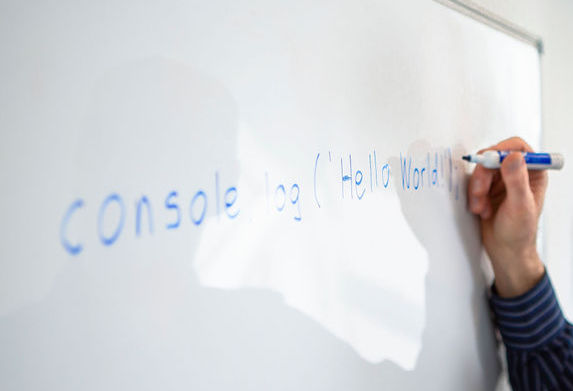 console.log('Hello World!')